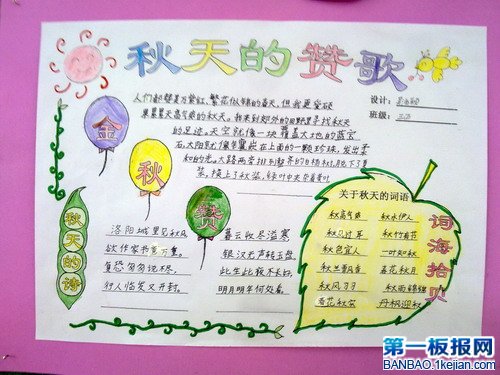 秋天的赞歌
设计：
班级：
人们都赞美万紫红、繁花似锦的春天，但我更爱硕
果累累天高气爽的秋天。我来到郊外的田野里寻找秋天
的足迹。天空就像一块覆盖大地的蓝宝
石，太阳就像镶嵌在上面的一颗珍珠，发出柔
和的光。大路两旁排列整齐的白杨树，脱下了夏
装，换上了秋装，绿叶中夹杂着黄叶
金
秋
赞
秋天的诗
洛阳城里见秋风
欲作家书意万重。
复恐匆匆说不尽，
行人临发又开封。
暮云收尽溢清寒
银汉无声转玉盘
此生此夜不长好
明月明年何处看。
关于秋天的词语
秋高气爽 秋水伊人
秋风过耳 秋竹
秋色宜人 一叶知秋
秋兰飘香 春花秋月
秋风 秋雨绵绵
春花秋实 丹枫迎秋
词海拾贝
第一板报网
BANBAO.1kejian.com